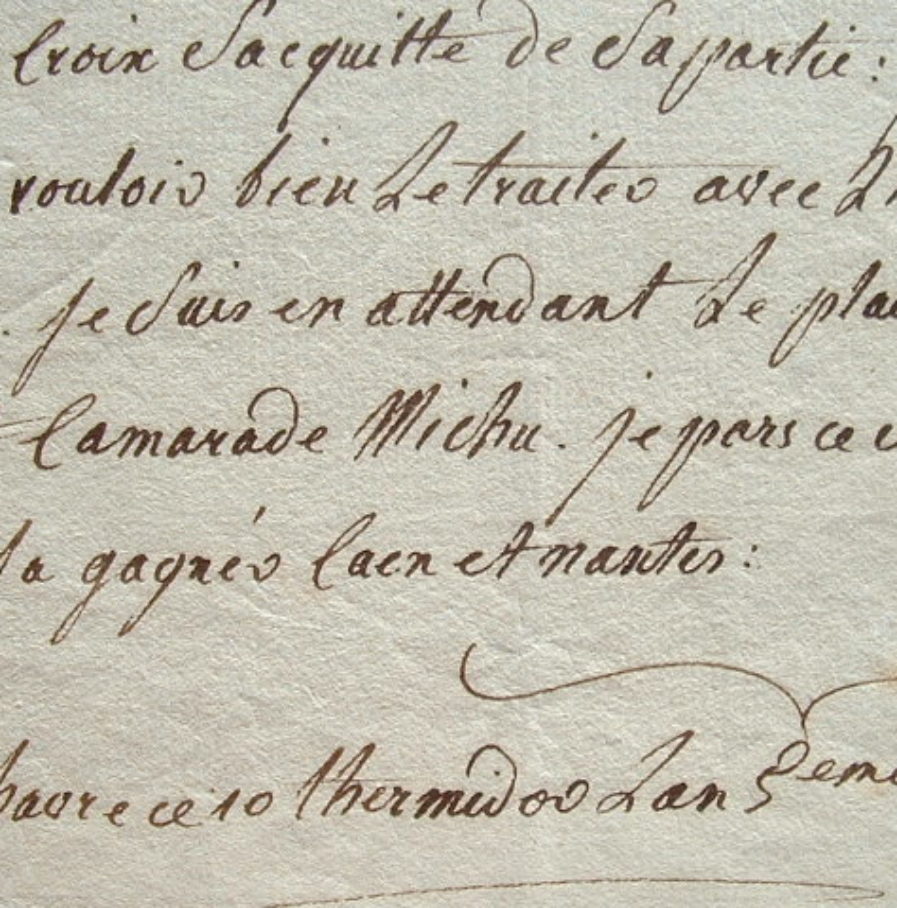 Croix Sacquitte de Sa partie:
vouloir bien Le traiter avec
. je Suis en attendant Le
Camarade Michu. je pars ce
gagner Caen et nantes:
havre ce 10 thermidor Lan